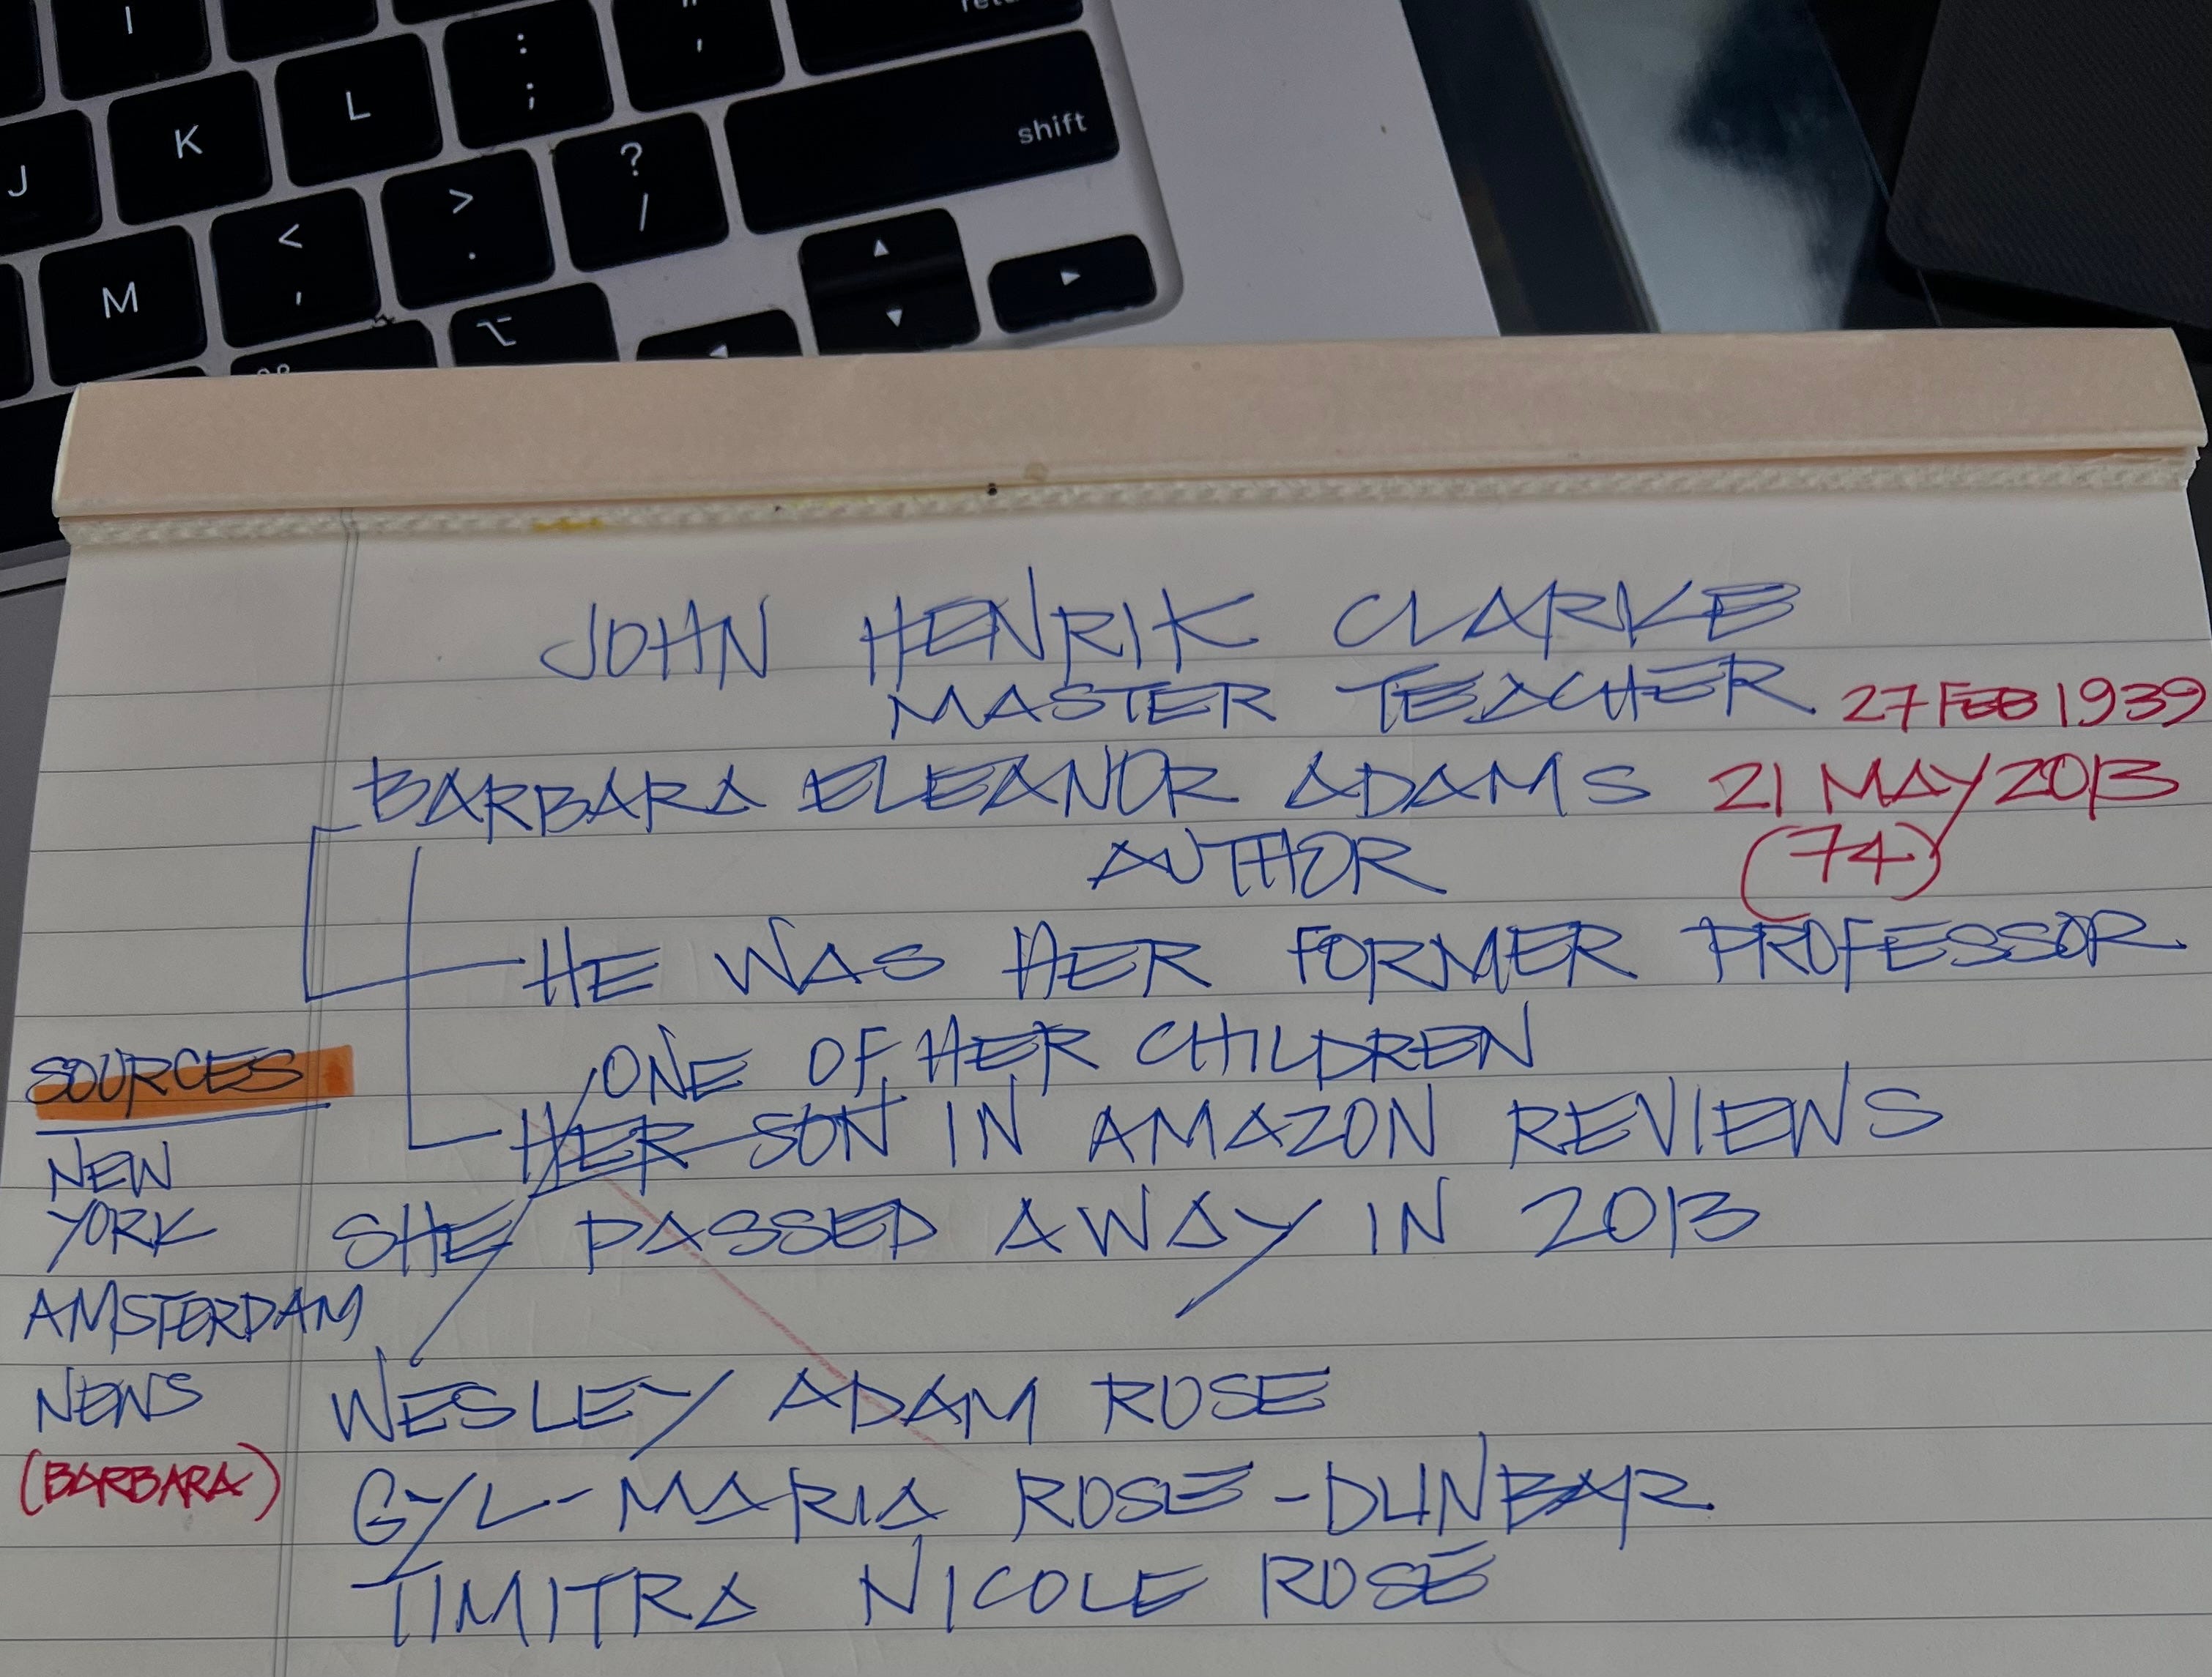 I
retu
" '
: ;
L
K
J
shift
? /
> .
< ,
M
⌥
JOHN HENRIK CLARKE
MASTER TEACHER
27 FEB 1939
BARBARA ELEANOR ADAMS
21 MAY 2013
AUTHOR
(74)
HE WAS HER FORMER PROFESSOR
ONE OF HER CHILDREN
HER SON IN AMAZON REVIEWS
SHE PASSED AWAY IN 2013
SOURCES
NEW
YORK
AMSTERDAM
NEWS
(BARBARA)
WESLEY ADAM ROSE
GYL-MARIA ROSE-DUNBAR
TIMITRA NICOLE ROSE